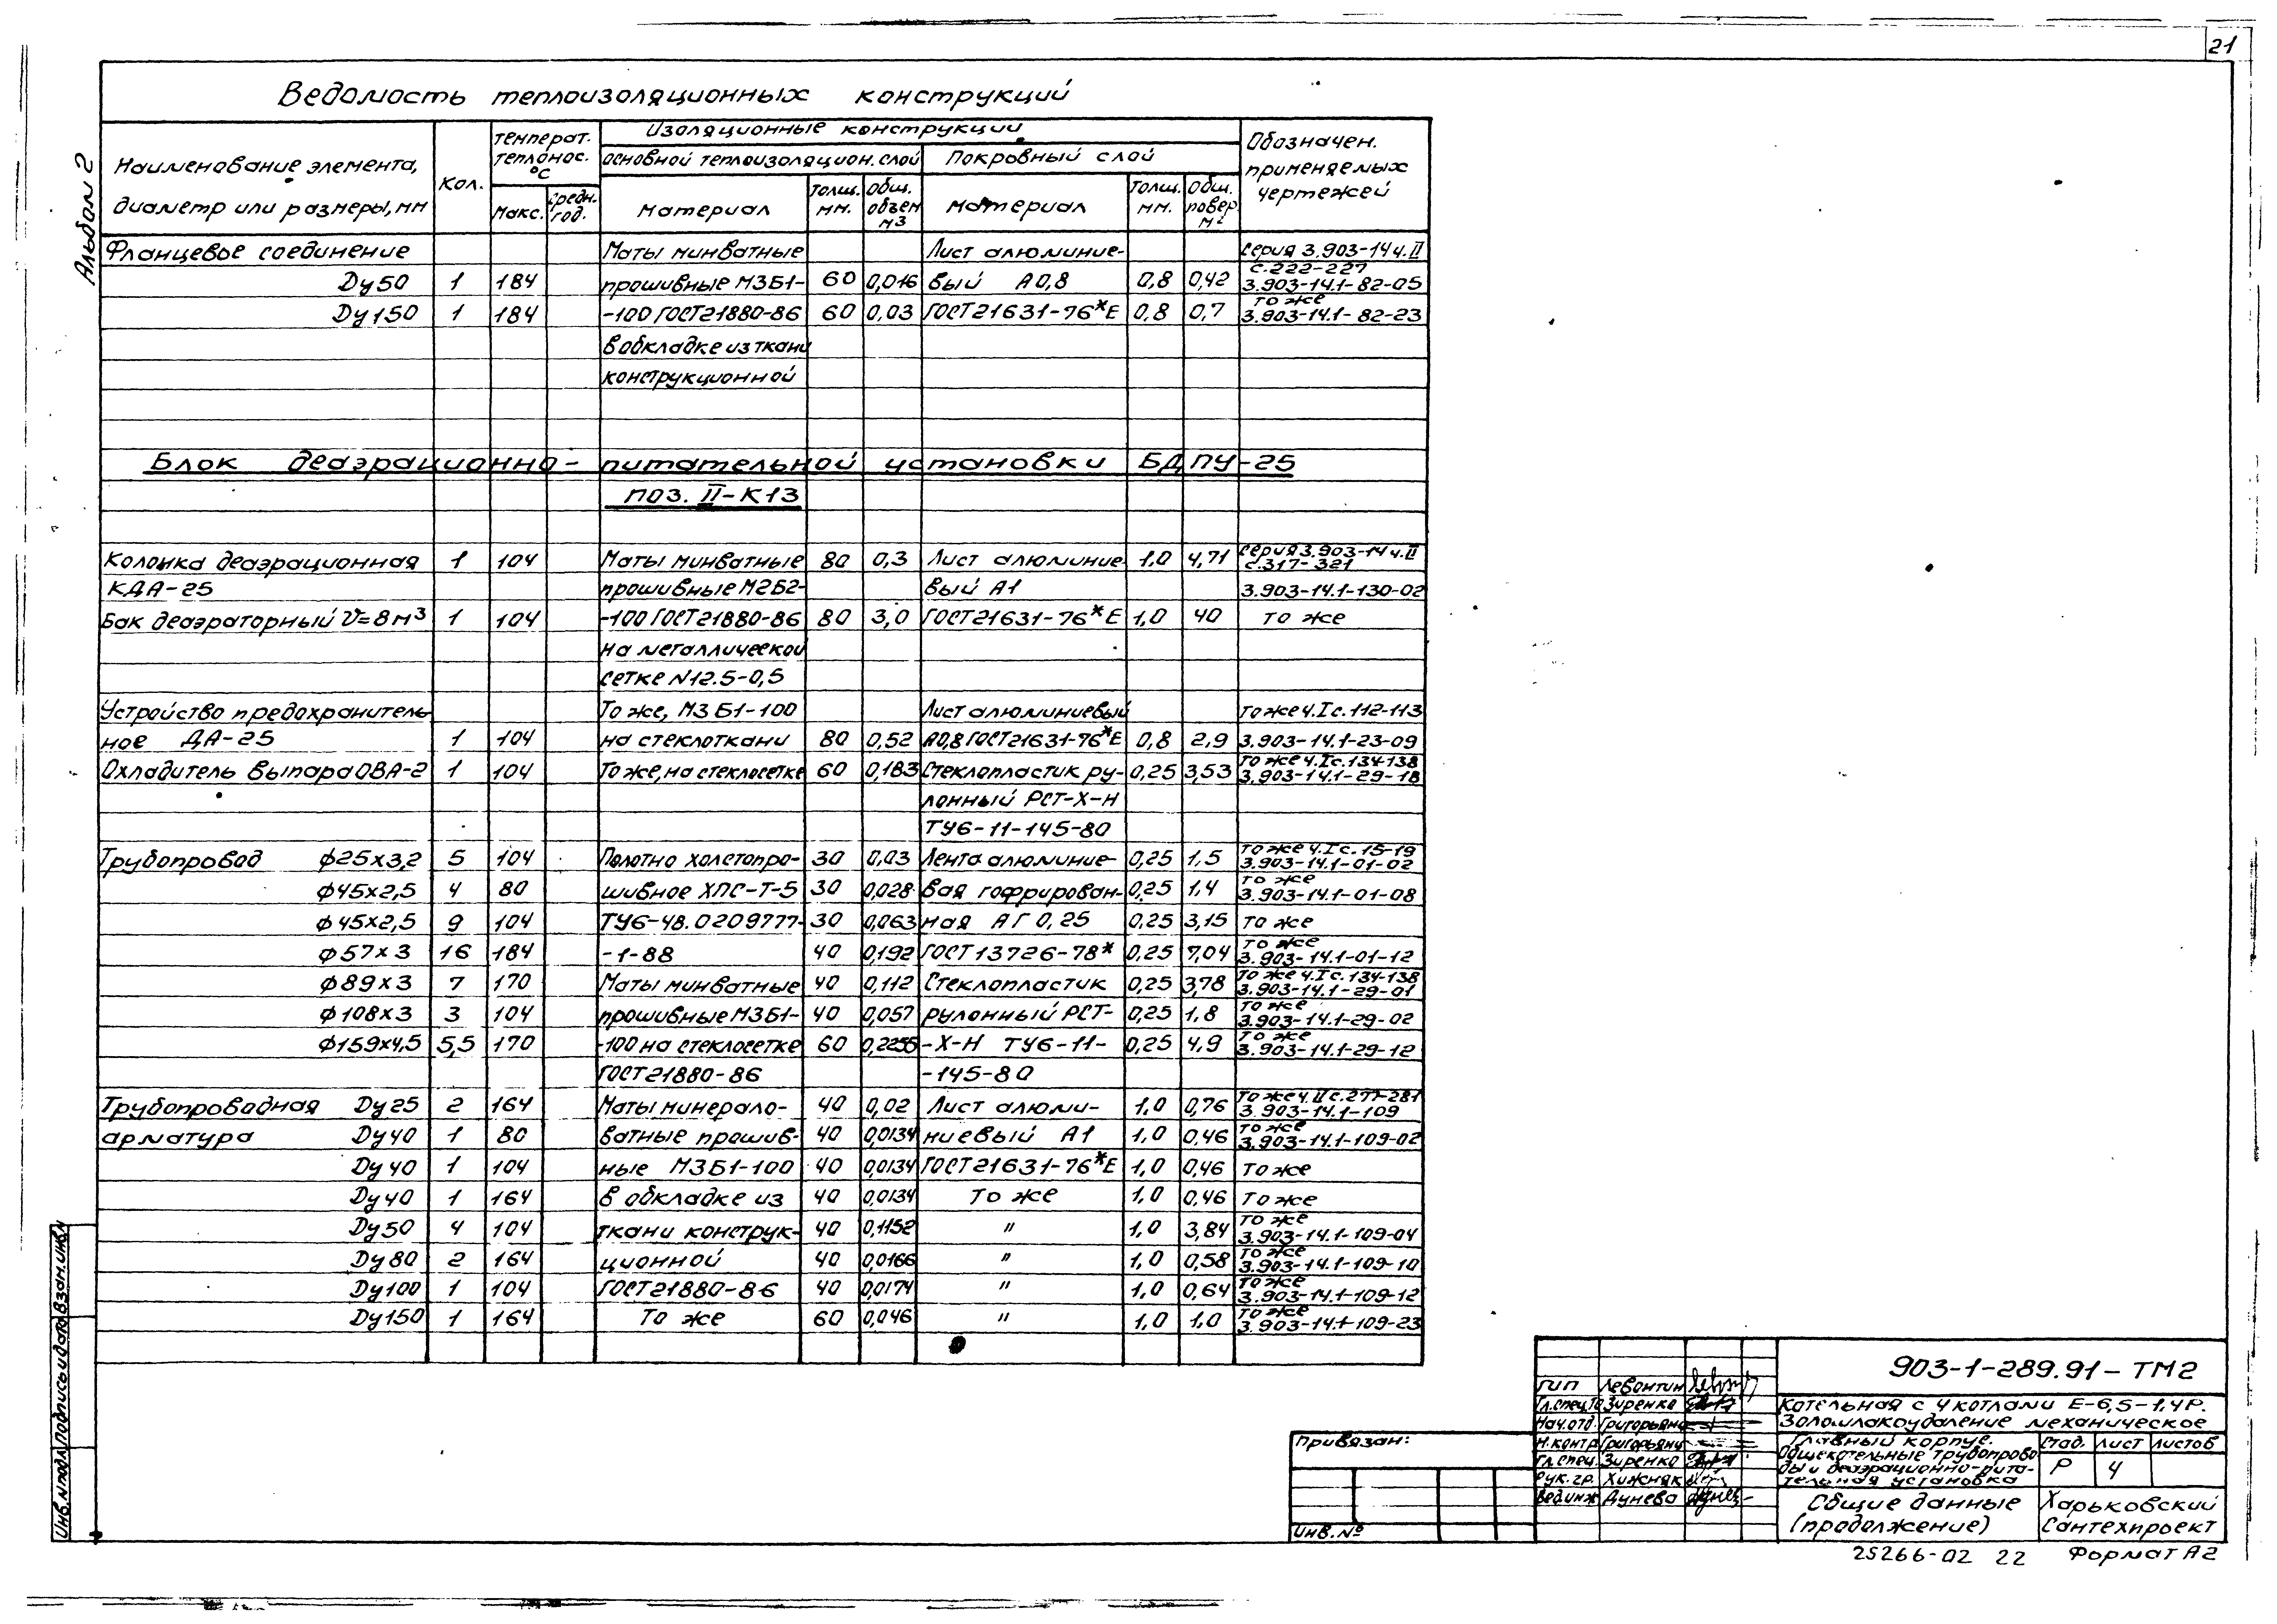 21
Альбом 2
Ведомость теплоизоляционных конструкций
Наименование элемента, диаметр или размеры, мм
Кол.
Температ. теплонос. °С
Макс.
Средн. год.
Изоляционные конструкции
Основной теплоизоляцион. слой
Покровный слой
Материал
Толщ. мм.
Общ. объем м3
Материал
Толщ. мм.
Общ. повер. м2
Обозначен. применяемых чертежей
Фланцевое соединение Маты минватные Лист алюминие- Серия 3.903-14 ч. II
с.222-227
Ду50 1 184 прошивные М3Б1- 60 0,016 вый А0,8 0,8 0,42 3.903-14.1-82-05
то же
Ду150 1 184 -100 ГОСТ21880-86 60 0,03 ГОСТ21631-76*Е 0,8 0,7 3.903-14.1-82-23
в обкладке из ткани
конструкционной
Блок деаэрационно-питательной установки БДПУ-25
поз. II-К13
Колонка деаэрационная 1 104 Маты минватные 80 0,3 Лист алюминие- 1,0 4,71 Серия 3.903-14 ч. II с.317-321
КДА-25 прошивные М2Б2- вый А1 3.903-14.1-130-02
Бак деаэраторный V=8м3 1 104 -100 ГОСТ21880-86 80 3,0 ГОСТ21631-76*Е 1,0 40 то же
на металлической
сетке N12.5-0,5
Устройство предохранитель- То же, М3Б1-100 Лист алюминиевый то же ч.I с.112-113
ное ДА-25 1 104 на стеклоткани 80 0,52 А0,8 ГОСТ21631-76*Е 0,8 2,9 3.903-14.1-23-09
Охладитель выпара ОВА-2 1 104 То же, на стеклосетке 60 0,183 Стеклопластик ру- 0,25 3,53 то же ч.I с.134-138 3.903-14.1-29-18
лонный РСТ-Х-Н
ТУ6-11-145-80
Трубопровод ф25х3,2 5 104 Полотно холстопро- 30 0,03 Лента алюминие- 0,25 1,5 то же ч.I с.15-19 3.903-14.1-01-02
ф45х2,5 4 80 шивное ХПС-Т-5 30 0,028 вая гофрирован- 0,25 1,4 то же 3.903-14.1-01-08
ф45х2,5 9 104 ТУ6-48.0209777- 30 0,063 ная АГ 0,25 0,25 3,15 то же
ф57х3 16 184 -1-88 40 0,192 ГОСТ13726-78* 0,25 7,04 то же 3.903-14.1-01-12
ф89х3 7 170 Маты минватные 40 0,112 Стеклопластик 0,25 3,78 то же ч.I с.134-138 3.903-14.1-29-01
ф108х3 3 104 прошивные М3Б1- 40 0,057 рулонный РСТ- 0,25 1,8 то же 3.903-14.1-29-02
ф159х4,5 5,5 170 -100 на стеклосетке 60 0,2255 -Х-Н ТУ6-11- 0,25 4,9 то же 3.903-14.1-29-12
ГОСТ21880-86 -145-80
Трубопроводная Ду25 2 164 Маты минерало- 40 0,02 Лист алюми- 1,0 0,76 то же ч.II с.277-281 3.903-14.1-109
арматура Ду40 1 80 ватные прошив- 40 0,0134 ниевый А1 1,0 0,46 то же 3.903-14.1-109-02
Ду40 1 104 ные М3Б1-100 40 0,0134 ГОСТ21631-76*Е 1,0 0,46 то же
Ду40 1 164 в обкладке из 40 0,0134 то же 1,0 0,46 то же
Ду50 4 104 ткани конструк- 40 0,1152 " 1,0 3,84 то же 3.903-14.1-109-04
Ду80 2 164 ционной 40 0,0166 " 1,0 0,58 то же 3.903-14.1-109-10
Ду100 1 104 ГОСТ21880-86 40 0,0174 " 1,0 0,64 то же 3.903-14.1-109-12
Ду150 1 164 То же 60 0,046 " 1,0 1,0 то же 3.903-14.1-109-23
Взам. инв.N
Подпись и дата
Инв.N подл.
Привязан:
Инв. №
ГИП Левонтин
Гл.спец.ТО Зиренко
Нач.отд. Григорьянц
Н.контр. Григорьянц
Гл.спец. Зиренко
Рук.гр. Хижняк
Вед.инж. Дунева
903-1-289.91-ТМ2
Котельная с 4 котлами Е-6,5-1,4Р.
Золошлакоудаление механическое
Главный корпус.
Общекотельные трубопрово-
ды и деаэрационно-пита-
тельная установка
Стад. Лист Листов
Р 4
Общие данные
(продолжение)
Харьковский
Сантехпроект
25266-02 22 Формат А2